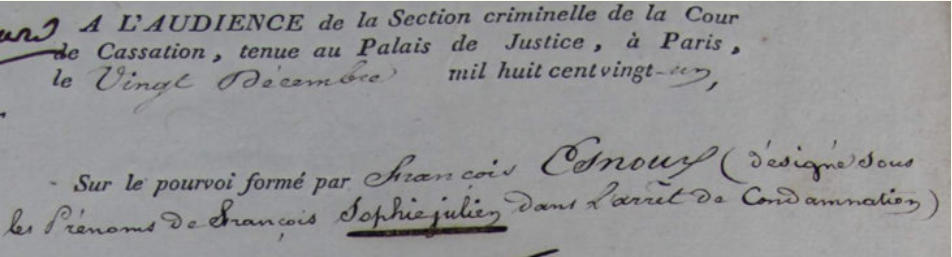 A L'AUDIENCE de la Section criminelle de la Cour
de Cassation, tenue au Palais de Justice, à Paris,
le Vingt Décembre mil huit cent vingt-un,
Sur le pourvoi formé par François Esnouf (désigné sous
les Prénoms de François Sophie julien dans L'arrêt de Condamnation)